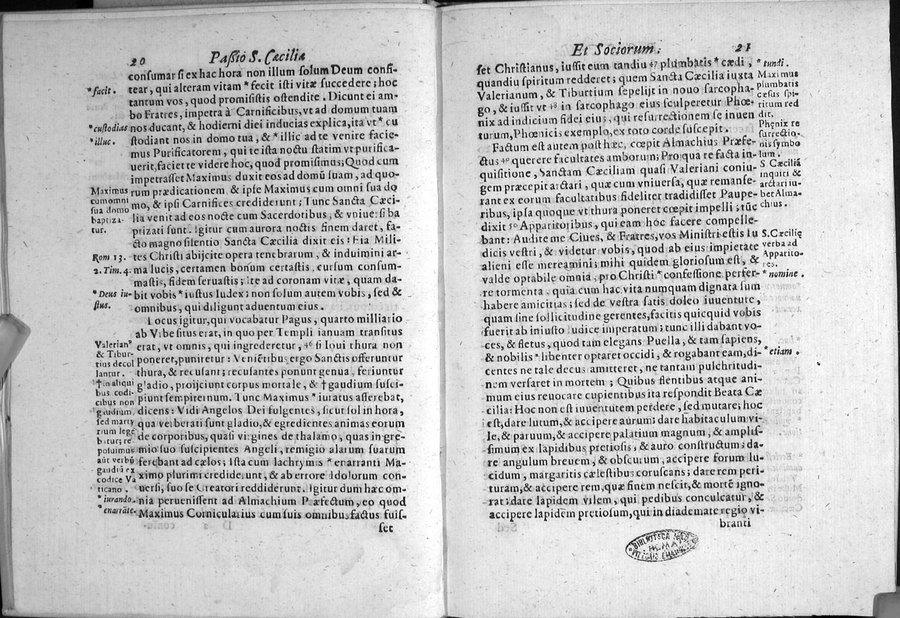 20 Passio S. Cæciliæ
consumar si ex hac hora non illum solum Deum confi-
tear, qui alteram vitam * fecit isti vitæ succedere; hoc
tantum vos, quod promisistis ostendite. Dicunt ei am-
bo Fratres, impetra à Carnificibus, vt ad domum tuam
nos ducant, & hodierni diei inducias explica, ita vt * cu
stodiant nos in domo tua, & * illic ad te venire facie-
mus Purificatorem, qui te ista noctu statim vt purifica-
uerit, faciet te videre hoc, quod promisimus; Quod cum
impetrasset Maximus duxit eos ad domũ suam, ad quo-
rum prædicationem & ipse Maximus cum omni sua do
mo, & ipsi Carnifices crediderunt; Tunc Sancta Cæci-
lia venit ad eos nocte cum Sacerdotibus, & vniuersi ba
ptizati sunt. Igitur cum aurora noctis finem daret, fa-
cto magno silentio Sancta Cæcilia dixit eis: Eia Mili-
tes Christi abijcite opera tenebrarum, & induimini ar-
ma lucis, certamen bonum certastis, cursum consum-
mastis, fidem seruastis; ite ad coronam vitæ, quam da-
bit vobis * iustus Iudex; non solum autem vobis, sed &
omnibus, qui diligunt aduentum eius.
Locus igitur, qui vocabatur Pagus, quarto milliario
ab Vrbe situs erat, in quo per Templi ianuam transitus
erat, vt omnis, qui ingrederetur, 46 si Ioui thura non
poneret, puniretur: Veniẽtibus ergo Sanctis offeruntur
thura, & recusant; recusantes ponunt genua, feriuntur
gladio, proijciunt corpus mortale, & † gaudium susci-
piunt sempiternum. Tunc Maximus * iuratus asserebat,
dicens: Vidi Angelos Dei fulgentes, sicut sol in hora,
qua verberati sunt gladio, & egredientes animas eorum
de corporibus, quasi virgines de thalamo, quas in gre-
mio suo suscipientes Angeli, remigio alarum suarum
ferebant ad cælos; ista cum lachrymis * enarranti Ma-
ximo plurimi crediderunt, & ab errore Idolorum con-
uersi, suo se Creatori reddiderunt. Igitur dum hæc om-
nia peruenissent ad Almachium Præfectum, eo quod
Maximus Cornicularius cum suis omnibus factus fuis-
set
* facit.
* custodias
* illuc.
Maximus
cum omni
sua domo
baptiza-
tur.
Rom 13.
2. Tim. 4.
* Deus iu-
stus.
Valerian9
& Tibur-
tius decol
lantur.
† in aliqui
bus codi-
cibus non
gaudium,
sed marty
rium lege
bitur; re-
posuimus
aut verbũ
gaudiũ ex
codice Va
ticano.
* iurando.
* enarrãte.
Et Sociorum. 21
set Christianus, iussit eum tandiu 47 plumbatis * cædi,
quandiu spiritum redderet; quem Sancta Cæcilia iuxta
Valerianum, & Tiburtium sepelijt in nouo sarcopha-
go, & iussit vt 48 in sarcophago eius sculperetur Phœ-
nix ad indicium fidei eius, qui resurrectionem se inuen
turum, Phœnicis exemplo, ex toto corde suscepit.
Factum est autem post hæc, cœpit Almachius Præfe-
ctus 49 querere facultates amborum; Pro qua re facta in-
quisitione, Sanctam Cæciliam quasi Valeriani coniu-
gem præcepit arctari, quæ cum vniuersa, quæ remanse-
rant ex eorum facultatibus fideliter tradidisset Paupe-
ribus, ipsa quoque vt thura poneret cœpit impelli; tũc
dixit 50 Apparitoribus, qui eam hoc facere compelle-
bant: Audite me Ciues, & Fratres, vos Ministri estis Iu
dicis vestri, & videtur vobis, quod ab eius impietate
alieni esse mereamini; mihi quidem gloriosum est, &
valde optabile omnia pro Christi * confessione perfer-
re tormenta, quia cum hac vita numquam dignata sum
habere amicitias; sed de vestra satis doleo iuuentute,
quam sine sollicitudine gerentes, facitis quicquid vobis
fuerit ab iniusto Iudice imperatum: tunc illi dabant vo-
ces, & fletus, quod tam elegans Puella, & tam sapiens,
& nobilis * libenter optaret occidi, & rogabant eam, di-
centes ne tale decus amitteret, ne tantam pulchritudi-
nem versaret in mortem; Quibus flentibus atque ani-
mum eius reuocare cupientibus ita respondit Beata Cæ
cilia: Hoc non est iuuentutem perdere, sed mutare; hoc
est, dare lutum, & accipere aurum; dare habitaculum vi-
le, & paruum, & accipere palatium magnum, & amplis-
simum ex lapidibus pretiosis, & auro constructum; da-
re angulum breuem, & obscurum, accipere forum lu-
cidum, margaritis cælestibus coruscans; dare rem peri-
turam, & accipere rem, quæ finem nescit, & mortẽ igno-
rat: dare lapidem vilem, qui pedibus conculcatur, &
accipere lapidẽm pretiosum, qui in diademate regio vi-
branti
* tundi.
Maximus
plumbatis
cæsus spi-
ritum red
dit.
Phœnix re
surrectio-
nis symbo
lum.
S. Cæcilia
inquiri &
arctari iu-
bet Alma-
chius.
S. Cæciliæ
verba ad
Apparito-
res.
* nomine.
* etiam.
BIBLIOTECA
ROMA